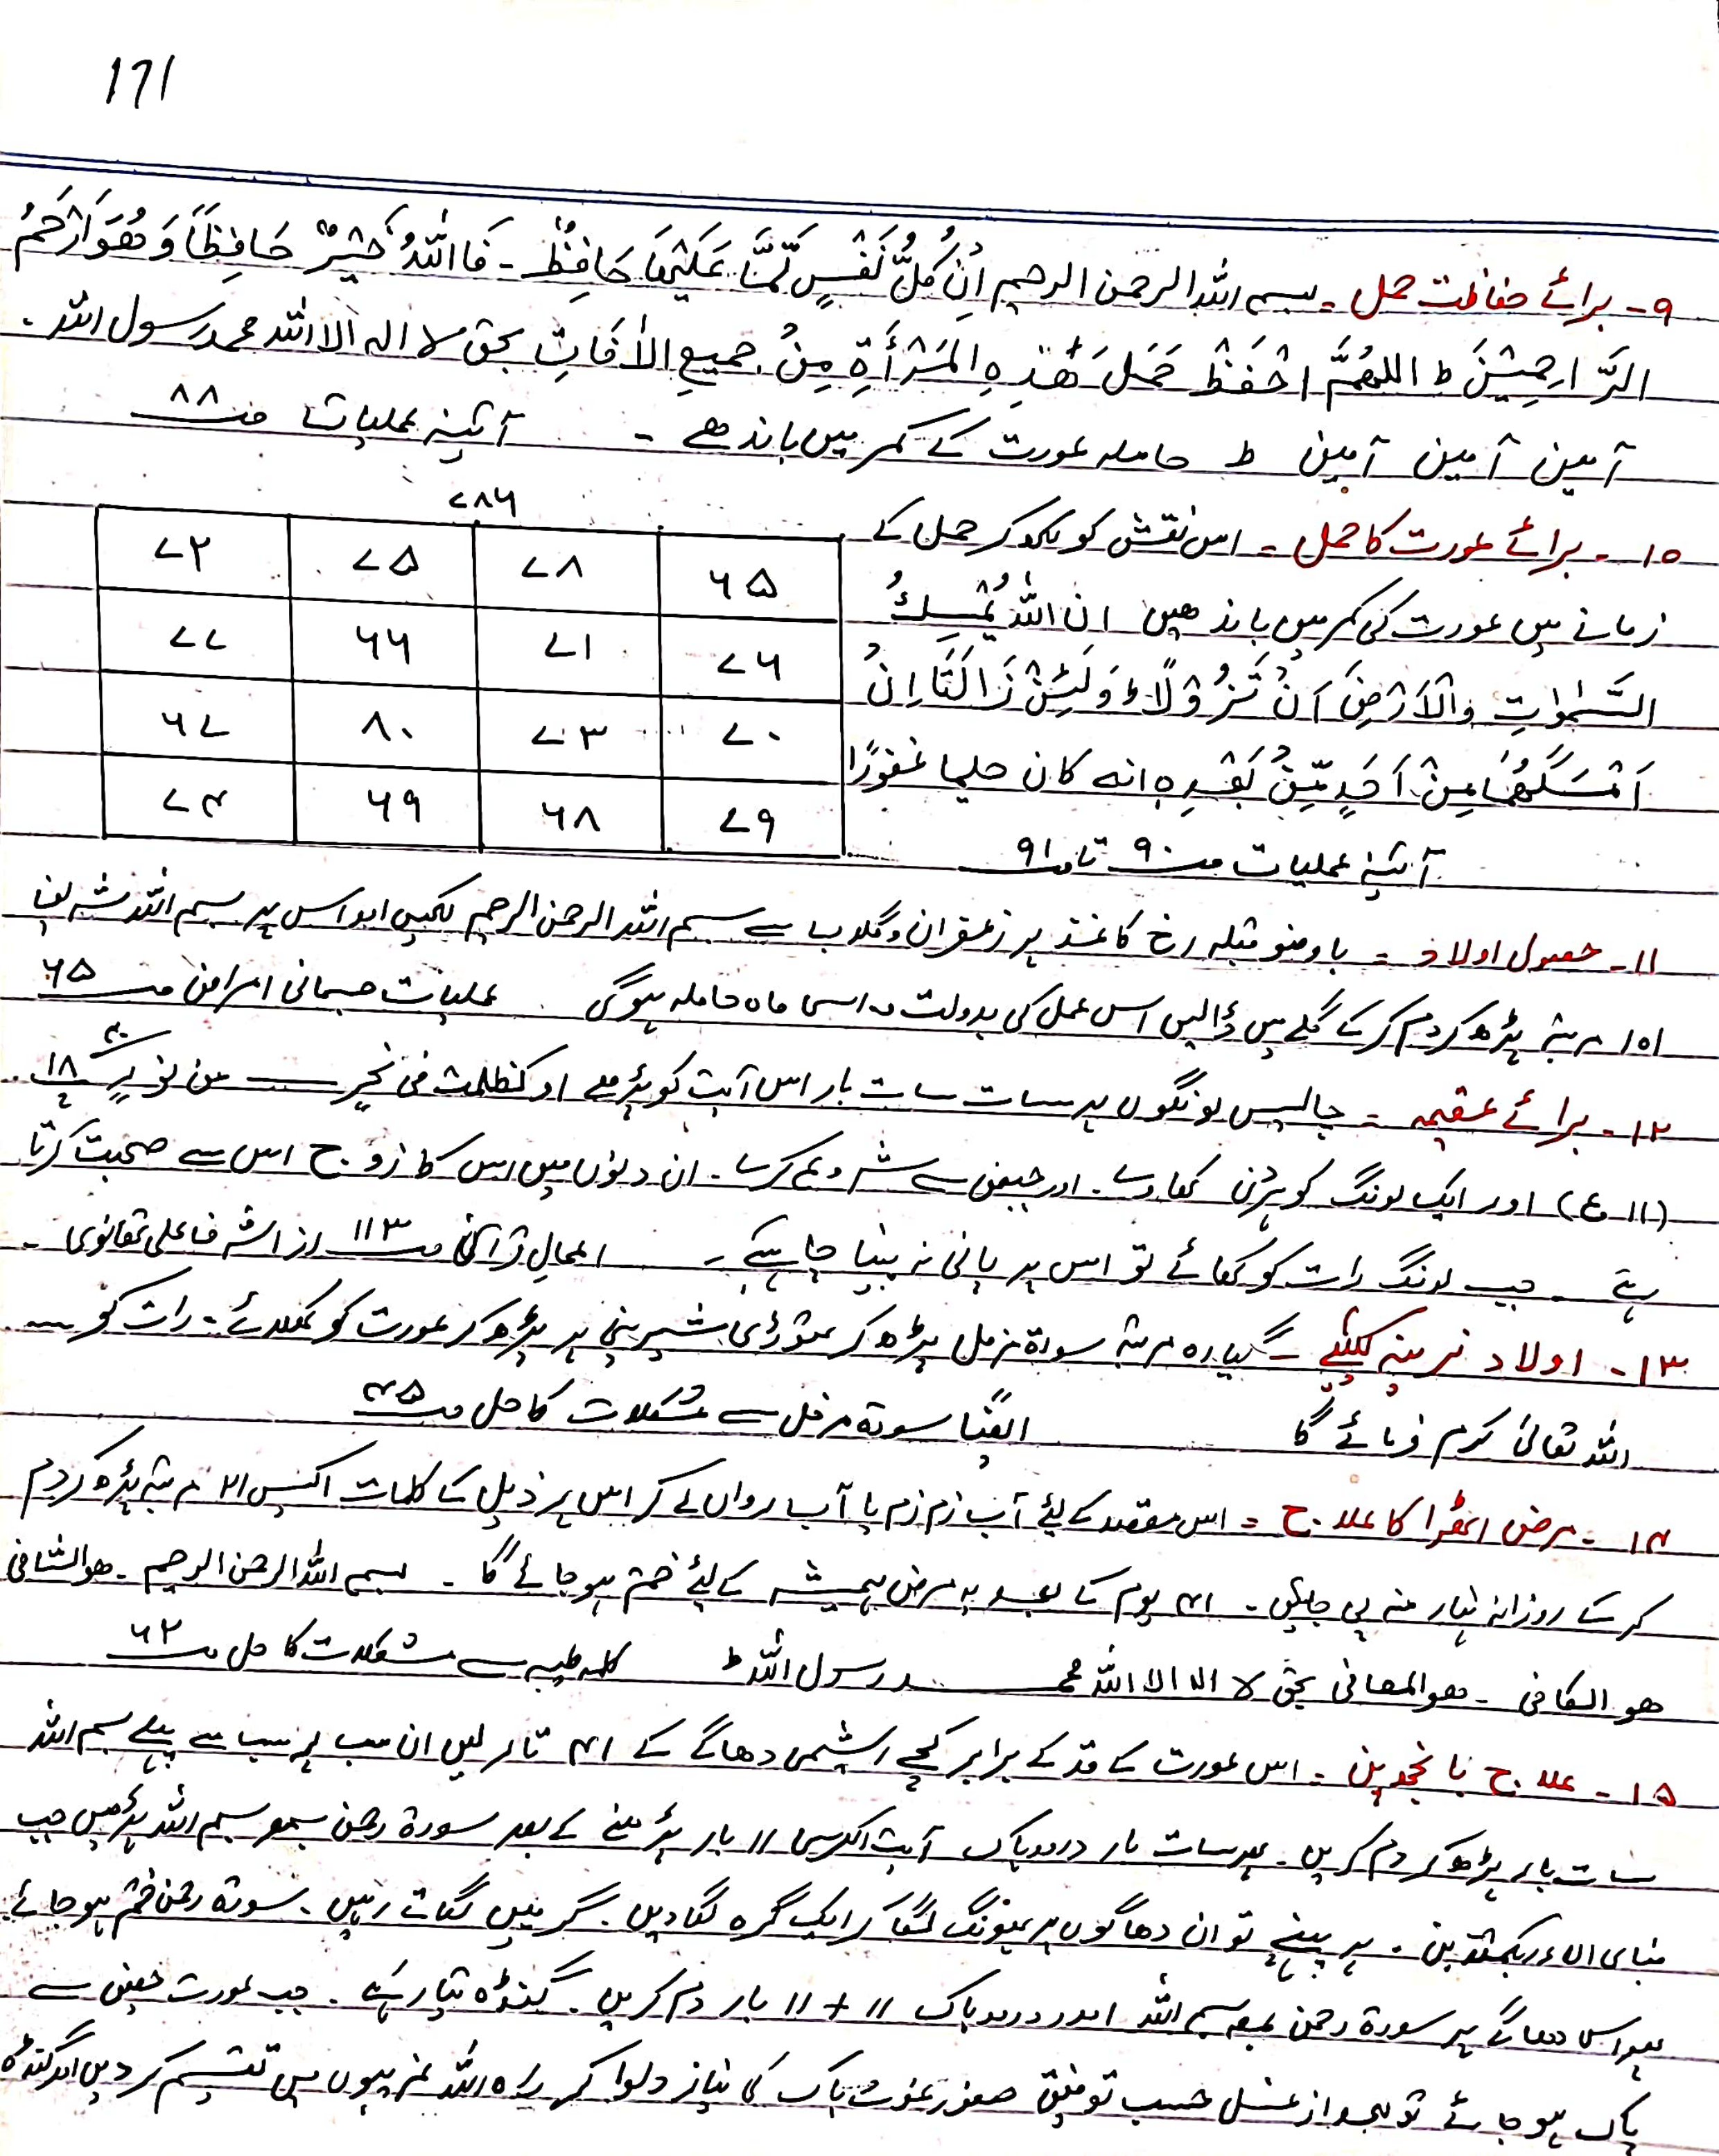 171
۹۔ برائے حفاظت حمل ۔ بسم اللہ الرحمن الرحیم اِنْ کُلُّ نَفْسٍ لَّمَّا عَلَیْھَا حَافِظٌ ۔ فَااللّٰہُ خَیْرٌ حَافِظًا وَ ھُوَ اَرْحَمُ
الرَّاحِمِیْنَ ط اللھُمَّ احْفَظْ حَمَلَ ھٰذِہِ الْمَرْأَۃِ مِنْ جمیعِ الْاٰفَاتِ بحق لا الہ الا اللہ محمد رسول اللہ ۔
آمین آمین آمین ط حاملہ عورت کے کمر میں باندھے ۔ آئینہ عملیات صـ ۸۸
۷۸۶
۱۰۔ برائے عورت کا حمل ۔ اس نقش کو لکھ کر حمل کے
زمانے میں عورت کی کمر میں باندھیں ان اللّٰہَ یُمْسِکُ
السَّمٰوٰتِ وَالْاَرْضِ اَنْ تَزُوْلَا ط وَلَئِنْ زَالَتَا اِنْ
اَمْسَکَھُمَا مِنْ اَحَدٍ مِّنْ بَعْدِہٖ انہ کان حلیما غفورًا
آئینہ عملیات صـ ۹۰ تا صـ ۹۱
۷۲ ۷۵ ۷۸ ۶۵
۷۷ ۶۶ ۷۱ ۷۶
۶۷ ۸۰ ۷۳ ۷۰
۷۴ ۶۹ ۶۸ ۷۹
۱۱۔ حصول اولاد ۔ باوضو قبلہ رخ کاغذ پر زعفران و گلاب سے بسم اللہ الرحمن الرحیم لکھیں اور اس پر بسم اللہ شریف
۱۰۱ مرتبہ پڑھ کر دم کر کے گلے میں ڈالیں اس عمل کی بدولت اسی ماہ حاملہ ہوگی عملیات جسمانی امراض صـ ۶۵
۱۲۔ برائے عقیمہ ۔ چالیس لونگوں پر سات سات بار اس آیت کو پڑھے او کظلمت فی بحر ـــــ من نور ۴۰ پ ۱۸
(۱۱ ع) اور ایک لونگ کو ہر دن کھاوے ۔ اور حیض سے شروع کرے ۔ ان دنوں میں اس کا زوج اس سے صحبت کرتا
رہے ۔ جب لونگ رات کو کھائے تو اس پر پانی نہ پینا چاہیے ۔ اعمال قرآنی صـ ۱۱۳ از اشرف علی تھانوی ۔
۱۳۔ اولاد نرینہ کیلئے ۔ گیارہ مرتبہ سورۃ مزمل پڑھ کر تھوڑی شیرینی پر پڑھ کر عورت کو کھلائے ۔ رات کو
اللہ تعالیٰ کرم فرمائے گا ایضًا سورۃ مزمل سے مشکلات کا حل صـ ۴۵
۱۴۔ مرض اٹھرا کا علاج ۔ اس مقصد کے لیئے آب زم زم یا آب رواں لے کر اس پر ذیل کے کلمات اکیس ۲۱ مرتبہ پڑھ کر دم
کر کے روزانہ نہار منہ پی جائیں ۔ ۴۱ یوم کے بعد یہ مرض ہمیشہ کے لیئے ختم ہو جائے گا ۔ بسم اللہ الرحمن الرحیم ۔ ھوالشافی
ھو الکافی ۔ ھو المعافی بحق لا الہ الا اللہ محمد رسول اللہ ط کلمہ طیبہ سے مشکلات کا حل صـ ۶۲
۱۵۔ علاج بانجھ پن ۔ اس عورت کے قد کے برابر کچے ریشمی دھاگے کے ۴۱ تار لیں ان سب پر سب سے پہلے بسم اللہ
سات بار پڑھ کر دم کریں ۔ پھر سات بار درود پاک آیت الکرسی ۱۱ بار پڑھنے کے بعد سورۃ رحمٰن بمع بسم اللہ پڑھیں جب
فبای الاء ربکما تکذبن ۔ پر پہنچے تو ان دھاگوں پر پھونک لگا کر ایک گرہ لگا دیں ۔ گرہیں لگاتے رہیں ۔ سورۃ رحمٰن ختم ہو جائے
پھر اس دھاگے پر سورۃ رحمن بمع بسم اللہ اور درود پاک ۱۱ + ۱۱ بار دم کریں ۔ گنڈہ تیار ہے ۔ جب عورت حیض سے
پاک ہو جائے تو بعد از غسل حسب توفیق حضور غوث پاک کی نیاز دلوا کر راہ اللہ غریبوں میں تقسیم کر دیں اور گنڈہ